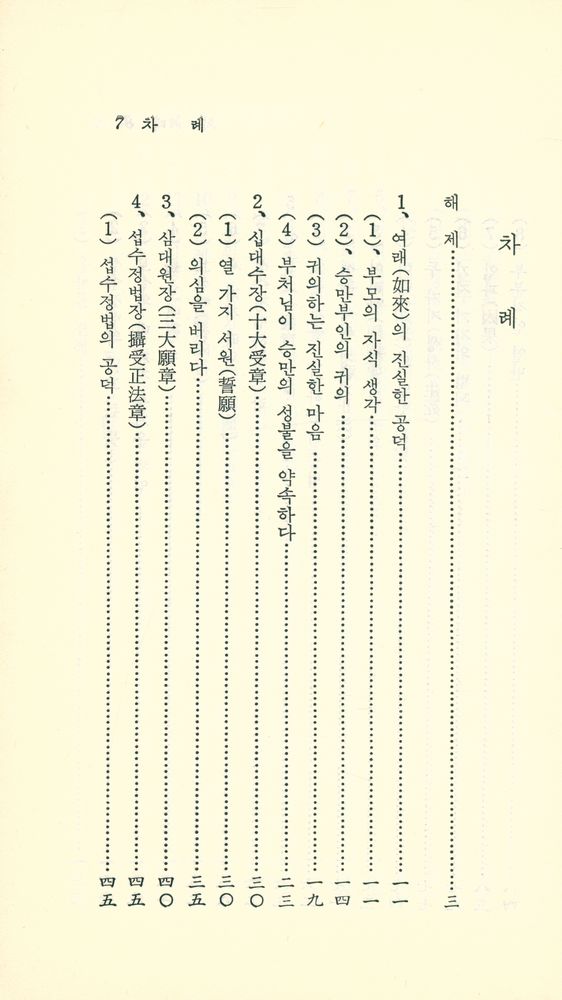 7 차 례
차 례
해 제……三
1、여래(如來)의 진실한 공덕……一一
(1)、부모의 자식 생각……一一
(2)、승만부인의 귀의……一四
(3) 귀의하는 진실한 마음……一九
(4) 부처님이 승만의 성불을 약속하다……二三
2、십대수장(十大受章)……三〇
(1) 열 가지 서원(誓願)……三〇
(2) 의심을 버리다……三五
3、삼대원장(三大願章)……四〇
4、섭수정법장(攝受正法章)……四五
(1) 섭수정법의 공덕……四五